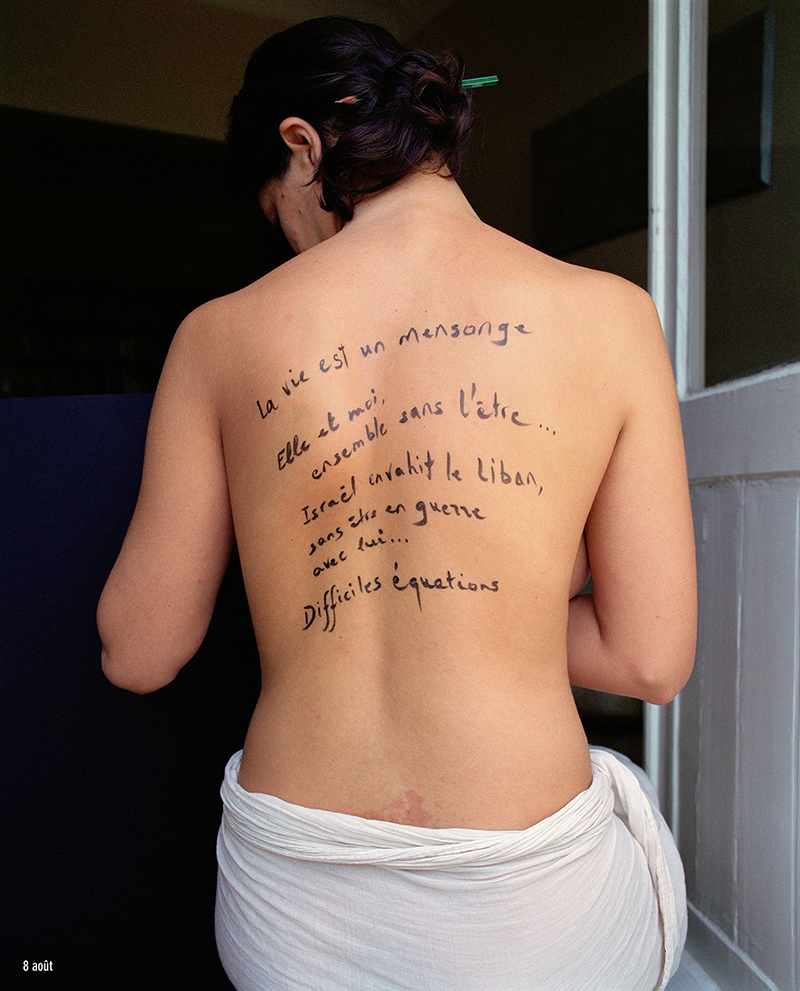 La vie est un mensonge
Elle et moi,
ensemble sans l'être...
Israël envahit le Liban,
sans être en guerre
avec lui...
Difficiles équations
8 août